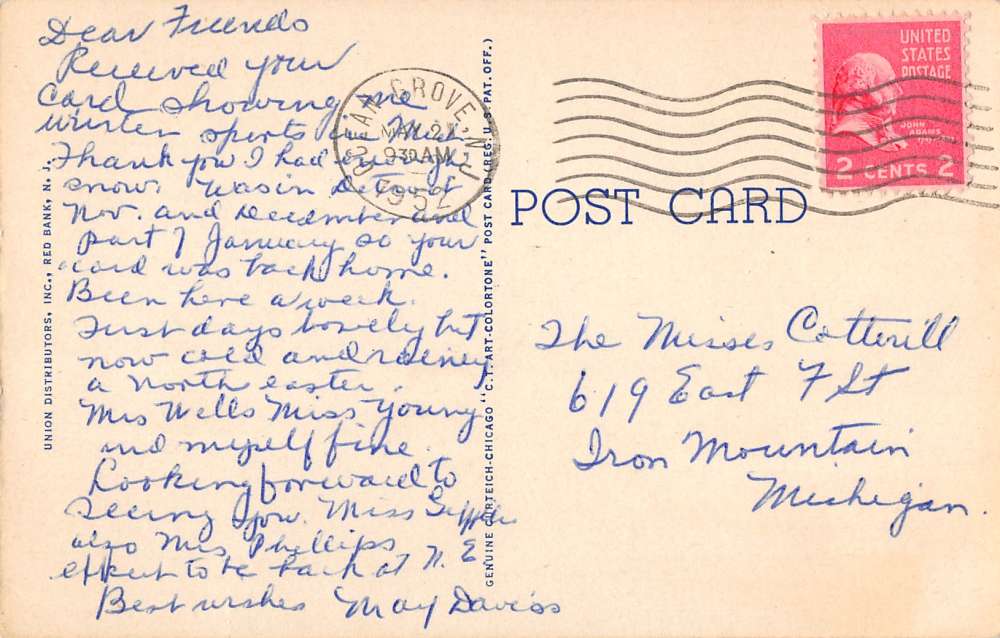 Dear Friends
Received your
card showing me
winter sports in Mich.
Thank you I had enough
snow. Was in Detroit
Nov. and December and
part of January so your
card was back home.
Been here a week.
First days lovely but
now cold and rainey
a north easter.
Mrs Wells Miss Young
and myself fine.
Looking forward to
seeing you. Miss
also Mrs Phillips
expect to be back at N. E
Best wishes May Daviss
UNION DISTRIBUTORS, INC., RED BANK, N. J.
GENUINE CURTEICH-CHICAGO "C.T. ART-COLORTONE" POST CARD (REG. U.S. PAT. OFF.)
OCEAN GROVE, N.J.
MAY 27
9 30 AM
1952
UNITED
STATES
POSTAGE
JOHN
ADAMS
2 CENTS 2
POST CARD
The Misses Cotterill
619 East F St
Iron Mountain
Michigan.